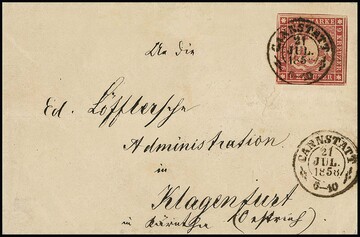 An die
Ed. Löfflersche
Administration
in
Klagenfurt
in Kärnthen (Oestreich)
MARKE
9 KREUZER
CANNSTATT
21
JUL.
1858
CANNSTATT
21
JUL.
1858
6-10